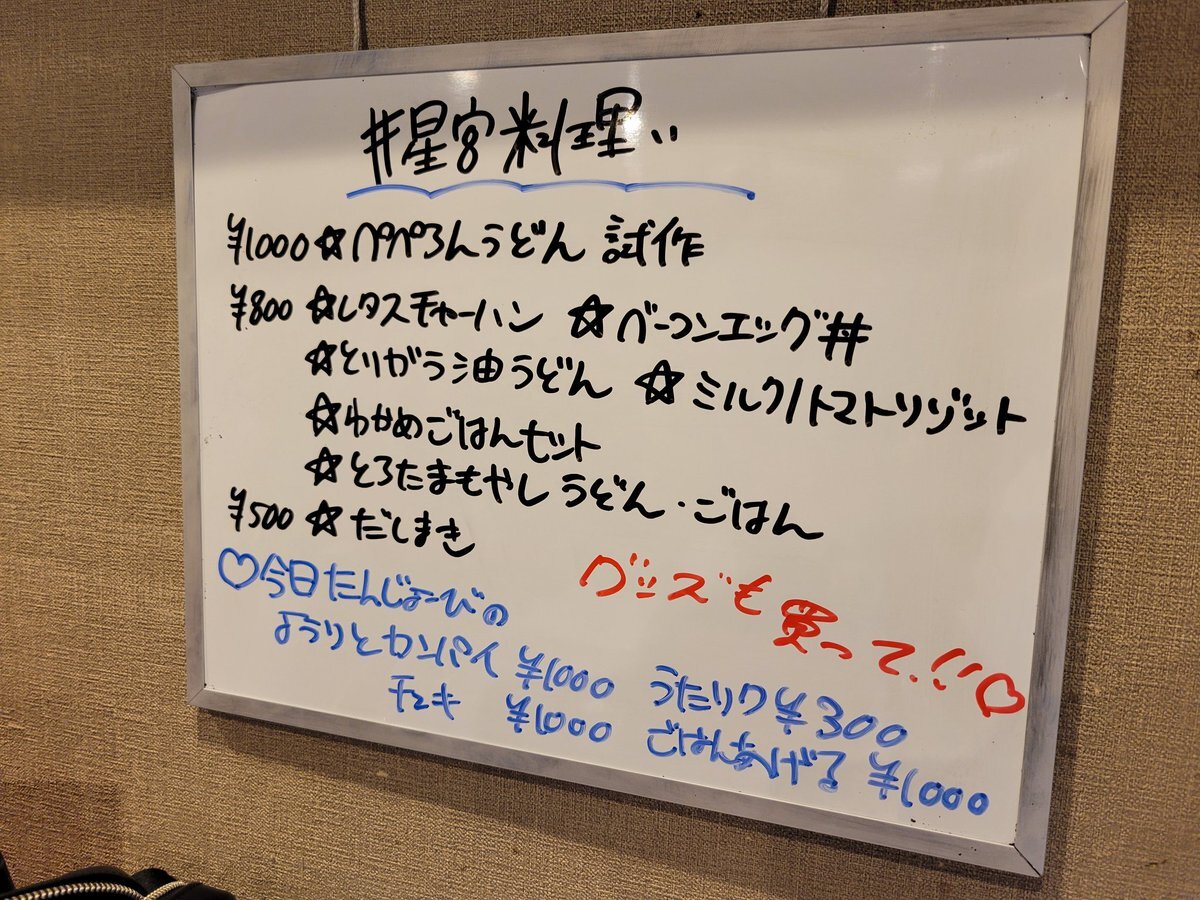 #星宮料理
¥1000 ☆ペペろんうどん 試作
¥800 ☆レタスチャーハン ☆ベーコンエッグ丼
☆とりガラ油うどん ☆ミルク/トマトリゾット
☆わかめごはんセット
☆とろたまもやし うどん・ごはん
¥500 ☆だしまき
グッズも買って!!♡
♡今日たんじょーびの
ようりとカンパイ ¥1000 うたリク¥300
チェキ ¥1000 ごはんあげる ¥1000